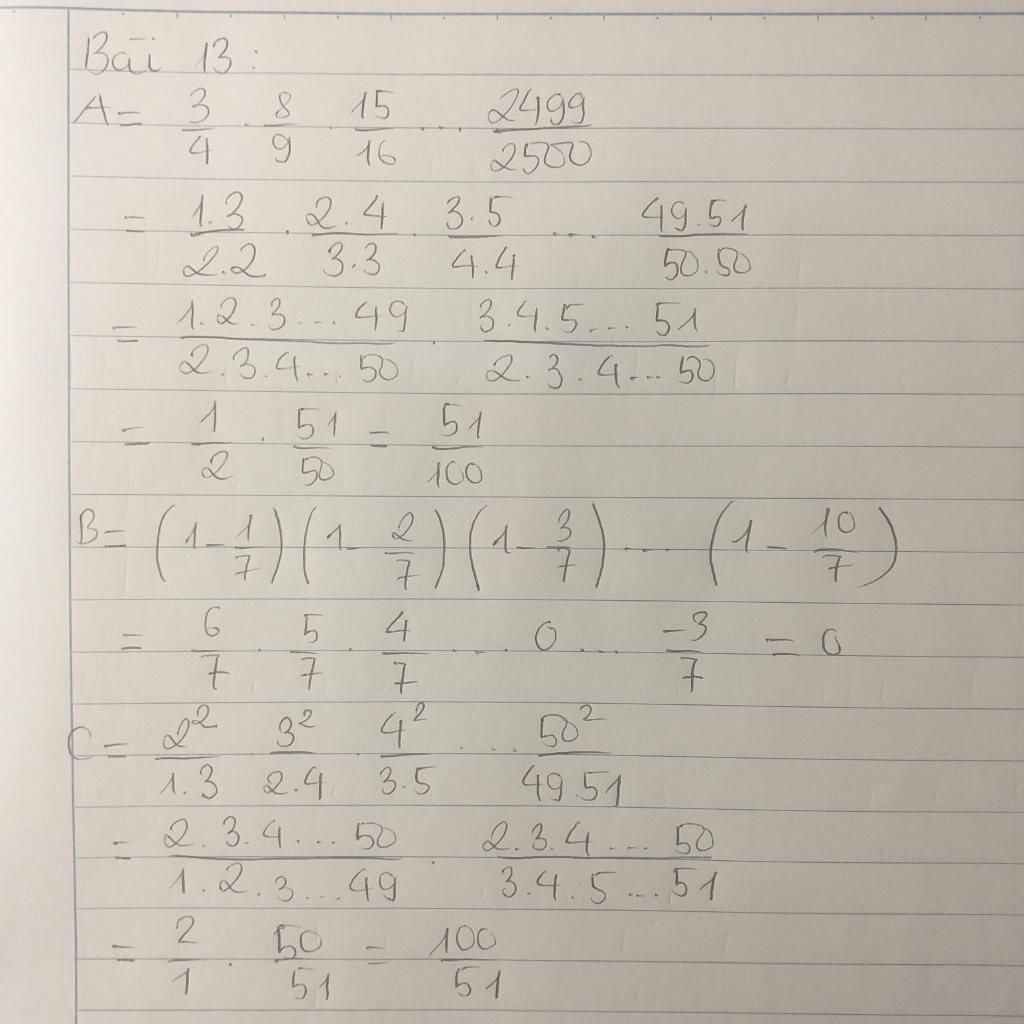 Bài 13:
A = 3/4 . 8/9 . 15/16 ... 2499/2500
= 1.3/2.2 . 2.4/3.3 . 3.5/4.4 ... 49.51/50.50
= 1.2.3...49/2.3.4...50 . 3.4.5...51/2.3.4...50
= 1/2 . 51/50 = 51/100
B = (1 - 1/7)(1 - 2/7)(1 - 3/7) ... (1 - 10/7)
= 6/7 . 5/7 . 4/7 ... 0 ... -3/7 = 0
C = 2²/1.3 . 3²/2.4 . 4²/3.5 . ... 50²/49.51
= 2.3.4...50/1.2.3...49 . 2.3.4...50/3.4.5...51
= 2/1 . 50/51 = 100/51